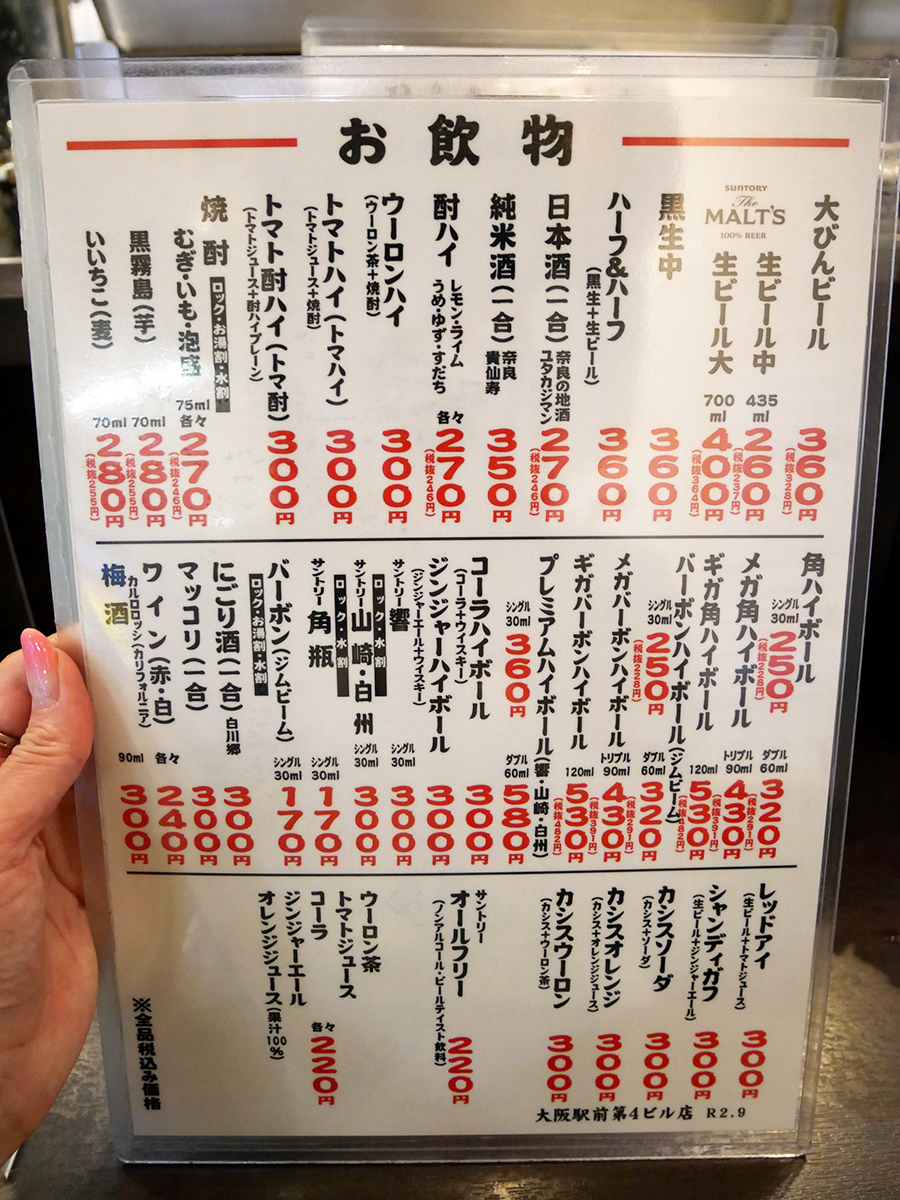 お飲物
大びんビール
360円
(税抜328円)
SUNTORY
The
MALT'S
100% BEER
生ビール中
435
ml
260円
(税抜237円)
生ビール大
700
ml
400円
(税抜364円)
黒生中
360円
ハーフ&ハーフ
(黒生+生ビール)
360円
日本酒(一合)
奈良の地酒
ユタカジマン
270円
(税抜246円)
純米酒(一合)
奈良
貴仙寿
350円
酎ハイ
レモン・ライム
うめ・ゆず・すだち
各々
270円
(税抜246円)
ウーロンハイ
(ウーロン茶+焼酎)
300円
トマトハイ(トマハイ)
(トマトジュース+焼酎)
300円
トマト酎ハイ(トマ酎)
(トマトジュース+酎ハイプレーン)
300円
焼酎
ロック・お湯割・水割
むぎ・いも・泡盛
75ml
各々
270円
(税抜246円)
黒霧島(芋)
70ml
280円
(税抜255円)
いいちこ(麦)
70ml
280円
(税抜255円)
角ハイボール
シングル
30ml
250円
(税抜228円)
ダブル
60ml
320円
(税抜291円)
メガ角ハイボール
トリプル
90ml
430円
(税抜391円)
ギガ角ハイボール
120ml
530円
(税抜482円)
バーボンハイボール(ジムビーム)
シングル
30ml
250円
(税抜228円)
ダブル
60ml
320円
(税抜291円)
メガバーボンハイボール
トリプル
90ml
430円
(税抜391円)
ギガバーボンハイボール
120ml
530円
(税抜482円)
プレミアムハイボール(響・山崎・白州)
シングル
30ml
360円
ダブル
60ml
580円
コーラハイボール
(コーラ+ウィスキー)
300円
ジンジャーハイボール
(ジンジャーエール+ウィスキー)
300円
サントリー響
ロック・水割
シングル
30ml
300円
サントリー山崎・白州
ロック・水割
シングル
30ml
300円
サントリー角瓶
シングル
30ml
170円
バーボン(ジムビーム)
ロック・お湯割・水割
シングル
30ml
170円
にごり酒(一合)白川郷
300円
マッコリ(一合)
300円
ワイン(赤・白)
カルロロッシ(カリフォルニア)
各々
240円
梅酒
90ml
300円
レッドアイ
(生ビール+トマトジュース)
300円
シャンディガフ
(生ビール+ジンジャーエール)
300円
カシスソーダ
(カシス+ソーダ)
300円
カシスオレンジ
(カシス+オレンジジュース)
300円
カシスウーロン
(カシス+ウーロン茶)
300円
サントリー
オールフリー
(ノンアルコール・ビールテイスト飲料)
220円
ウーロン茶
トマトジュース
コーラ
ジンジャーエール
オレンジジュース(果汁100%)
各々
220円
※全品税込み価格
大阪駅前第4ビル店 R2.9